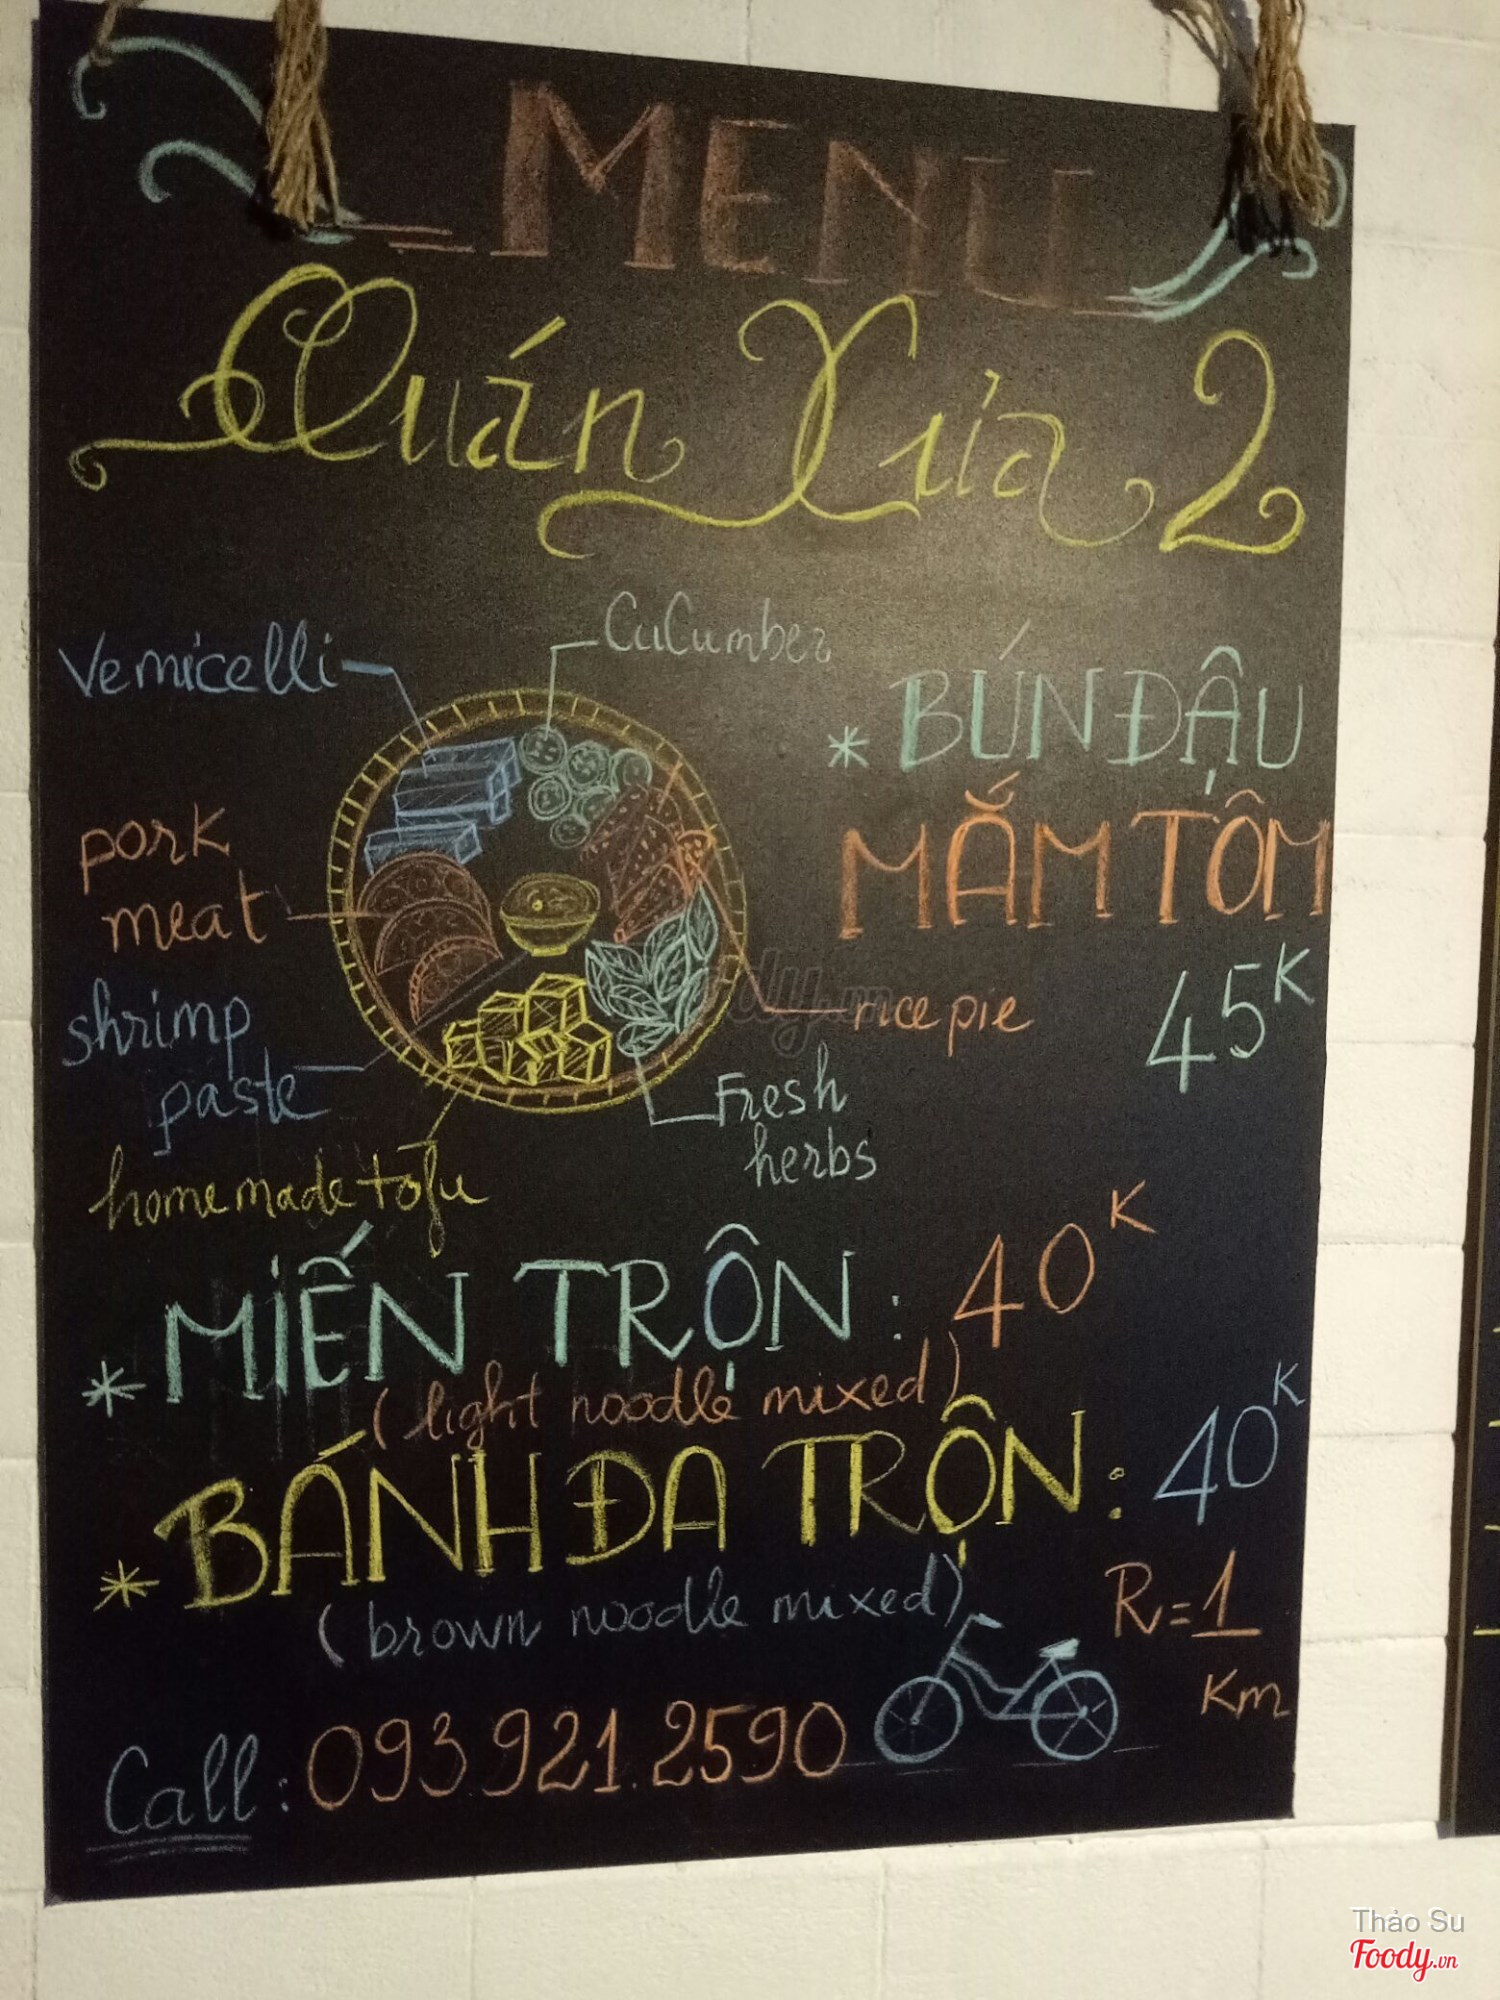 MENU
Quán Xưa 2
Vemicelli
CuCumber
* BÚN ĐẬU
MẮM TÔM
45K
pork
meat
shrimp
paste
rice pie
Fresh
herbs
homemade tofu
* MIẾN TRỘN: 40K
(light noodle mixed)
* BÁNH ĐA TRỘN: 40K
(brown noodle mixed)
R=1
Km
Call: 093.921.2590
Thảo Su
Foody.vn